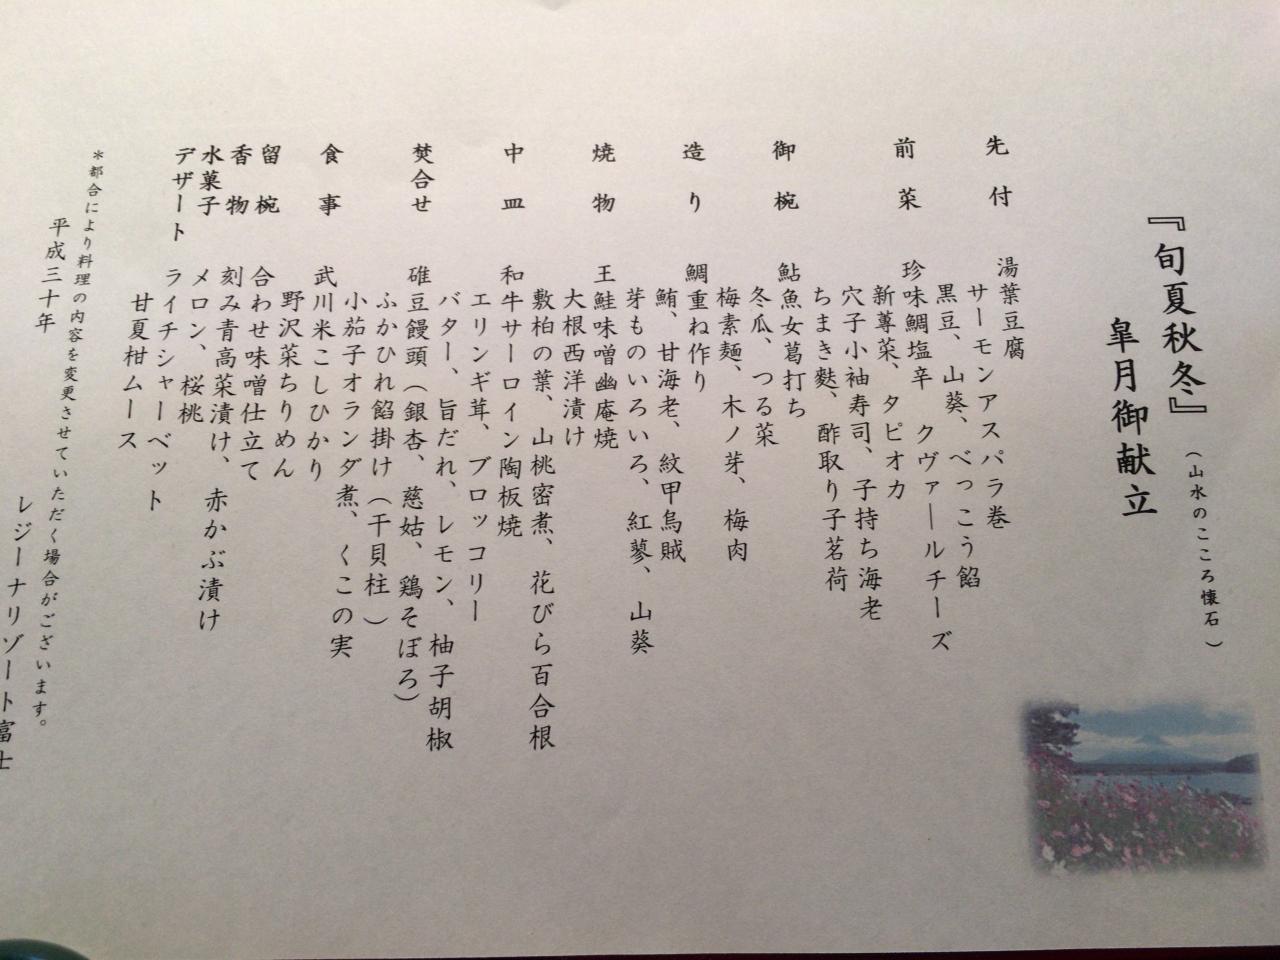 『旬夏秋冬』(山水のこころ懐石)
皐月御献立
先付 湯葉豆腐
サーモンアスパラ巻
黒豆、山葵、べっこう餡
前菜 珍味鯛塩辛 クヴァ―ルチーズ
新蓴菜、タピオカ
穴子小袖寿司、子持ち海老
ちまき麩、酢取り子茗荷
御椀 鮎魚女葛打ち
冬瓜、つる菜
梅素麺、木ノ芽、梅肉
造り 鯛重ね作り
鮪、甘海老、紋甲烏賊
芽ものいろいろ、紅蓼、山葵
焼物 王鮭味噌幽庵焼
大根西洋漬け
敷柏の葉、山桃密煮、花びら百合根
中皿 和牛サーロイン陶板焼
エリンギ茸、ブロッコリー
バター、旨だれ、レモン、柚子胡椒
焚合せ 碓豆饅頭(銀杏、慈姑、鶏そぼろ)
ふかひれ餡掛け(干貝柱)
小茄子オランダ煮、くこの実
食事 武川米こしひかり
野沢菜ちりめん
留椀 合わせ味噌仕立て
香物 刻み青高菜漬け、赤かぶ漬け
水菓子 メロン、桜桃
デザート ライチシャーベット
甘夏柑ムース
*都合により料理の内容を変更させていただく場合がございます。
平成三十年
レジーナリゾート富士